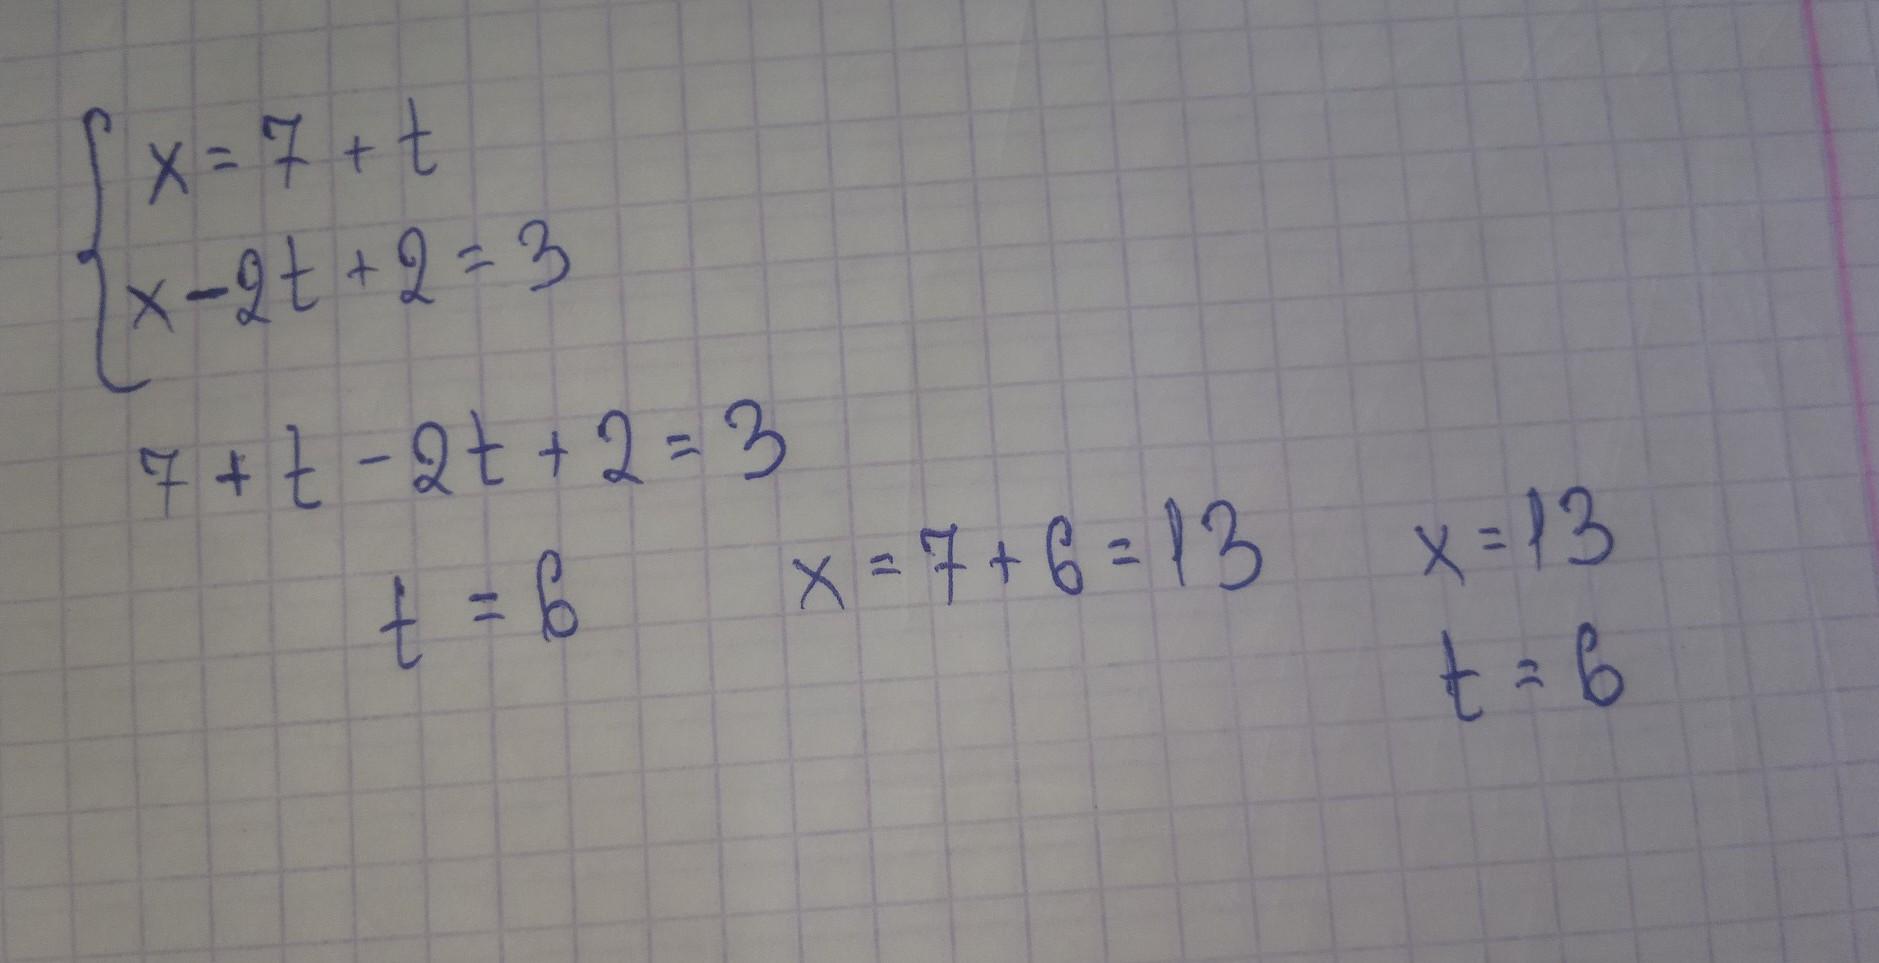 x = 7 + t
x - 2t + 2 = 3
7 + t - 2t + 2 = 3
t = 6
x = 7 + 6 = 13
x = 13
t = 6